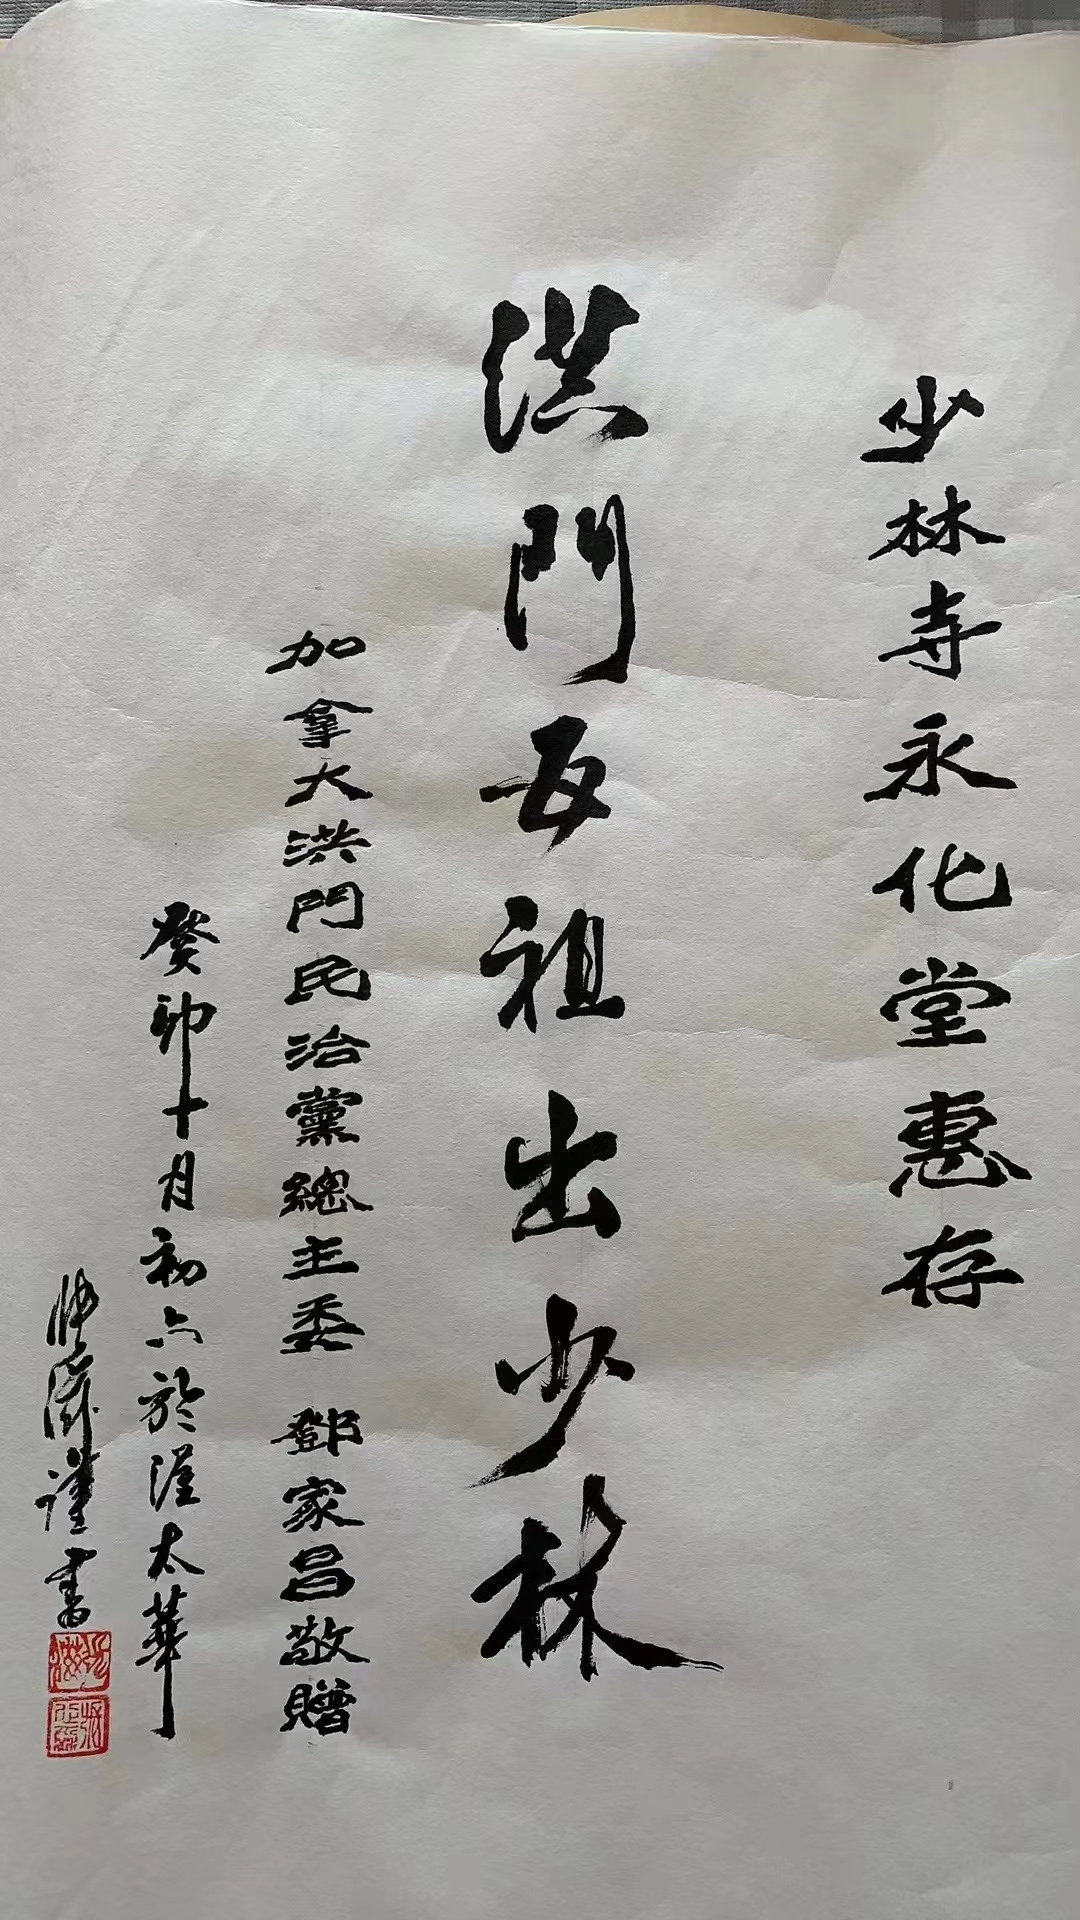 少林寺永化堂惠存
洪門五祖出少林
加拿大洪門民治黨總主委 鄧家昌敬贈
癸卯十月初六於渥太華
謹書